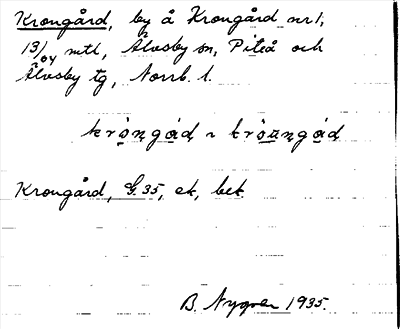 Krongård, by å Krongård nr 1,
13/64 mtl, Älvsby sn, Piteå och
Älvsby tg, Norrb. l.
Krongård, G. 35, ek, bet.
B. Nygren 1935.